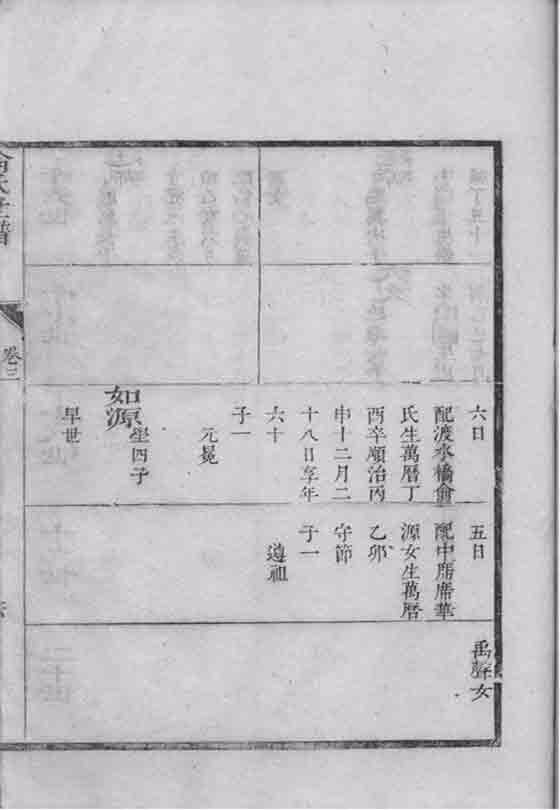 六日
配渡水橋俞
氏生萬曆丁
酉辛順治丙
申十二月二
十八日享年
六十
子一
元冕
如源
瑩四子
早世
五日
配中席席華
源女生萬曆
乙卯
守節
子一
遵祖
禹女
氏世譜
卷三